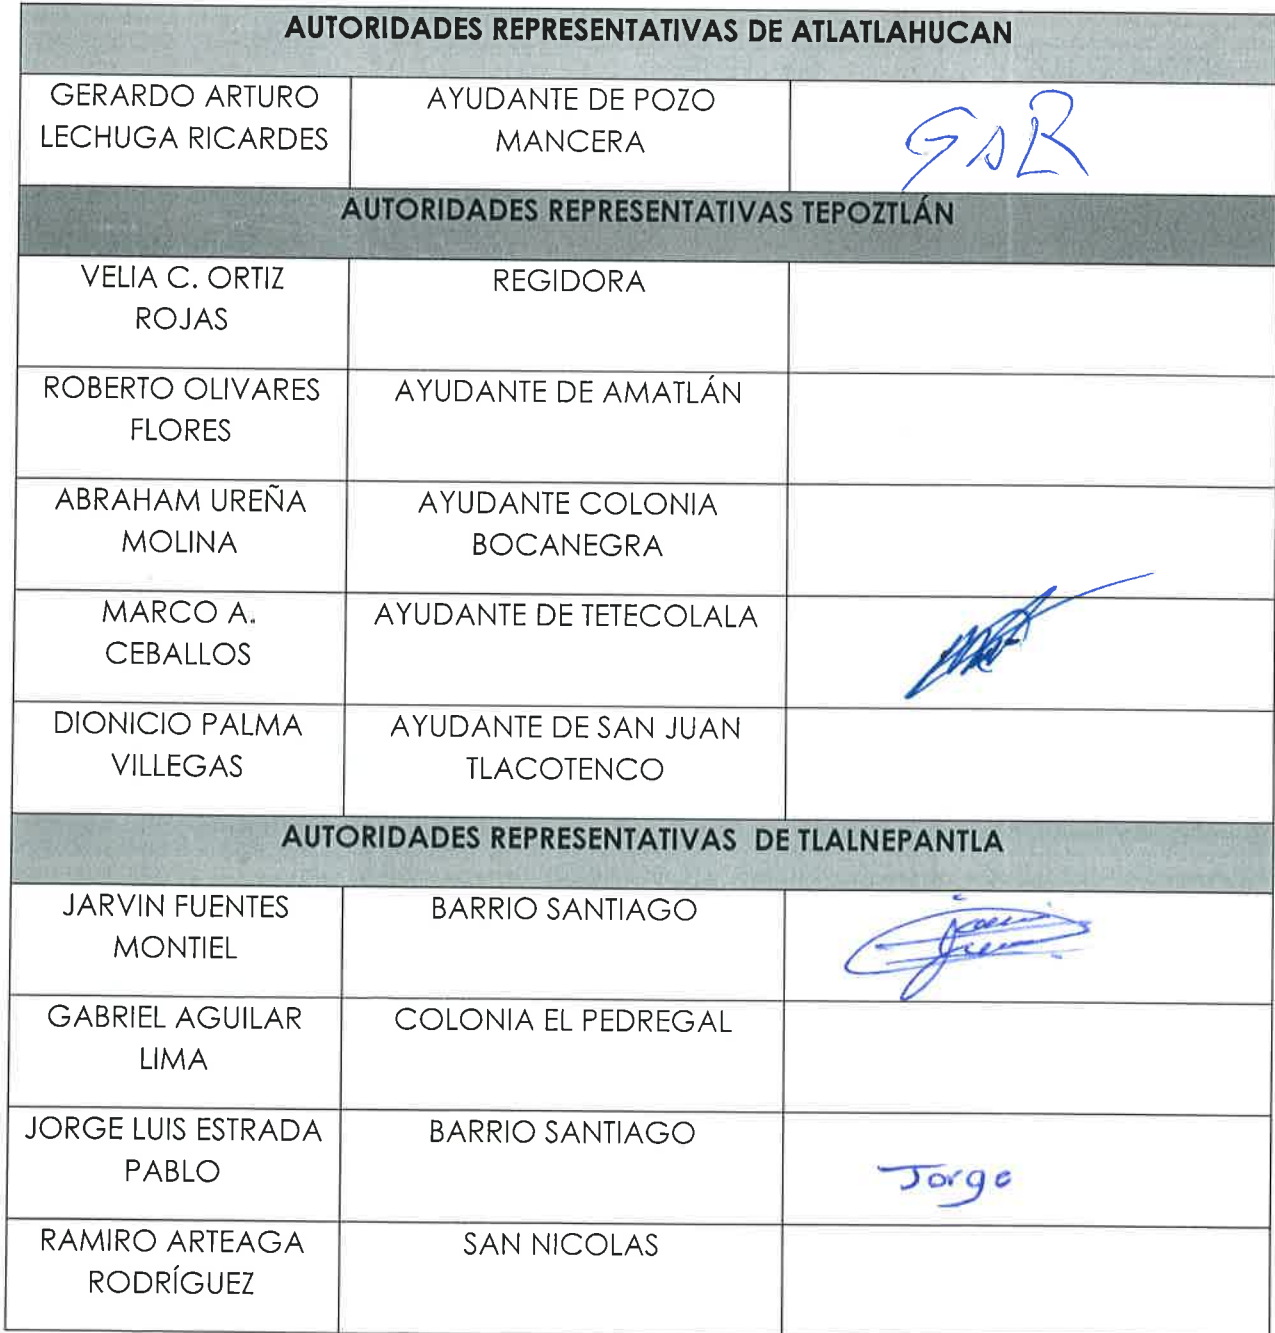 AUTORIDADES REPRESENTATIVAS DE ATLATLAHUCAN
GERARDO ARTURO
LECHUGA RICARDES
AYUDANTE DE POZO
MANCERA
AUTORIDADES REPRESENTATIVAS TEPOZTLÁN
VELIA C. ORTIZ
ROJAS
REGIDORA
ROBERTO OLIVARES
FLORES
AYUDANTE DE AMATLÁN
ABRAHAM UREÑA
MOLINA
AYUDANTE COLONIA
BOCANEGRA
MARCO A.
CEBALLOS
AYUDANTE DE TETECOLALA
DIONICIO PALMA
VILLEGAS
AYUDANTE DE SAN JUAN
TLACOTENCO
AUTORIDADES REPRESENTATIVAS DE TLALNEPANTLA
JARVIN FUENTES
MONTIEL
BARRIO SANTIAGO
GABRIEL AGUILAR
LIMA
COLONIA EL PEDREGAL
JORGE LUIS ESTRADA
PABLO
BARRIO SANTIAGO
Jorge
RAMIRO ARTEAGA
RODRÍGUEZ
SAN NICOLAS